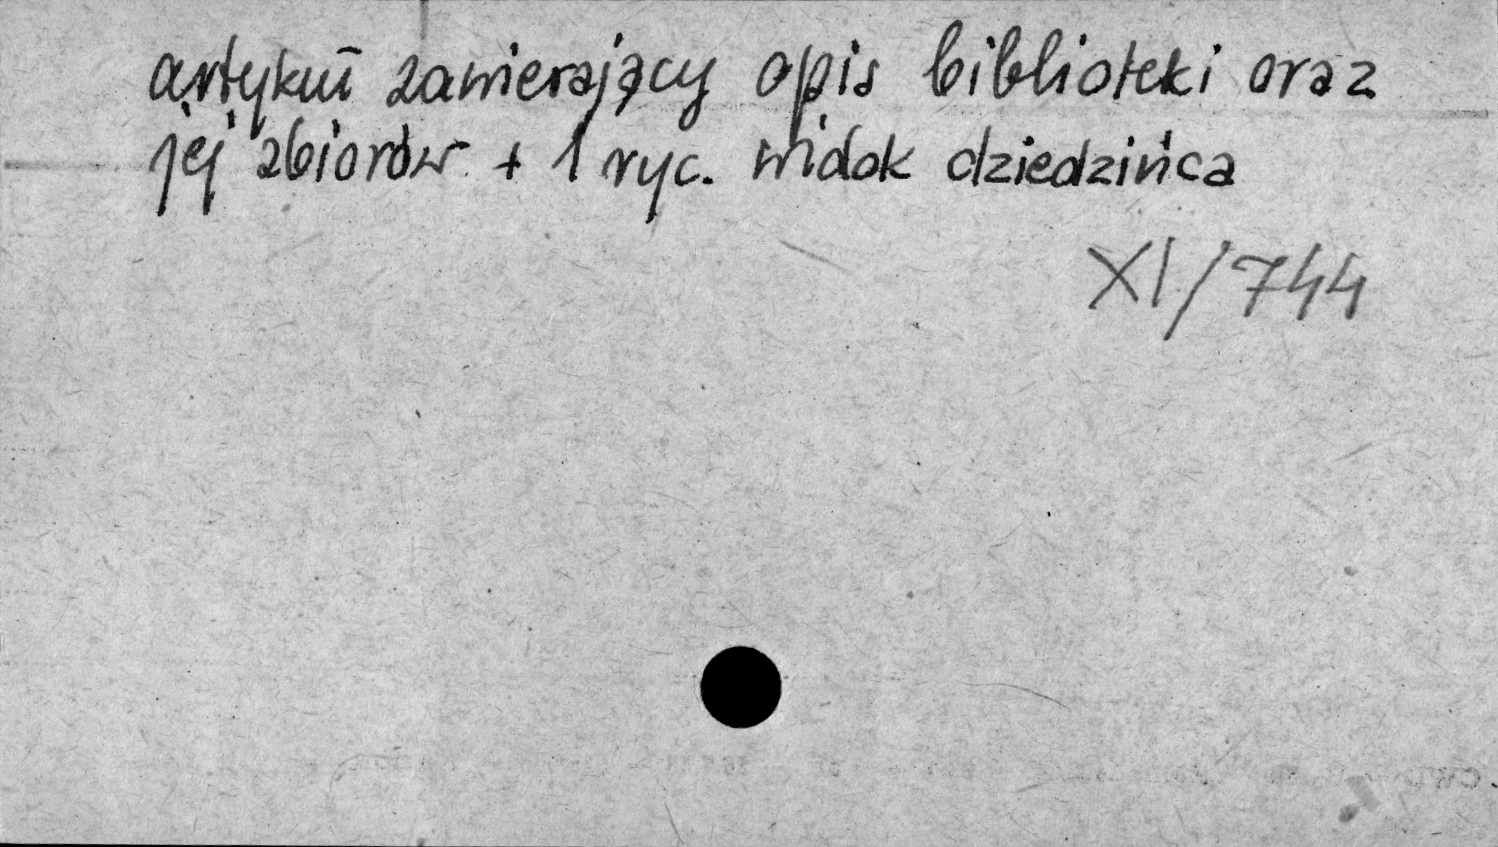 artykuł zawierający opis biblioteki oraz
jej zbiorów + 1 ryc. widok dziedzińca
XI/744